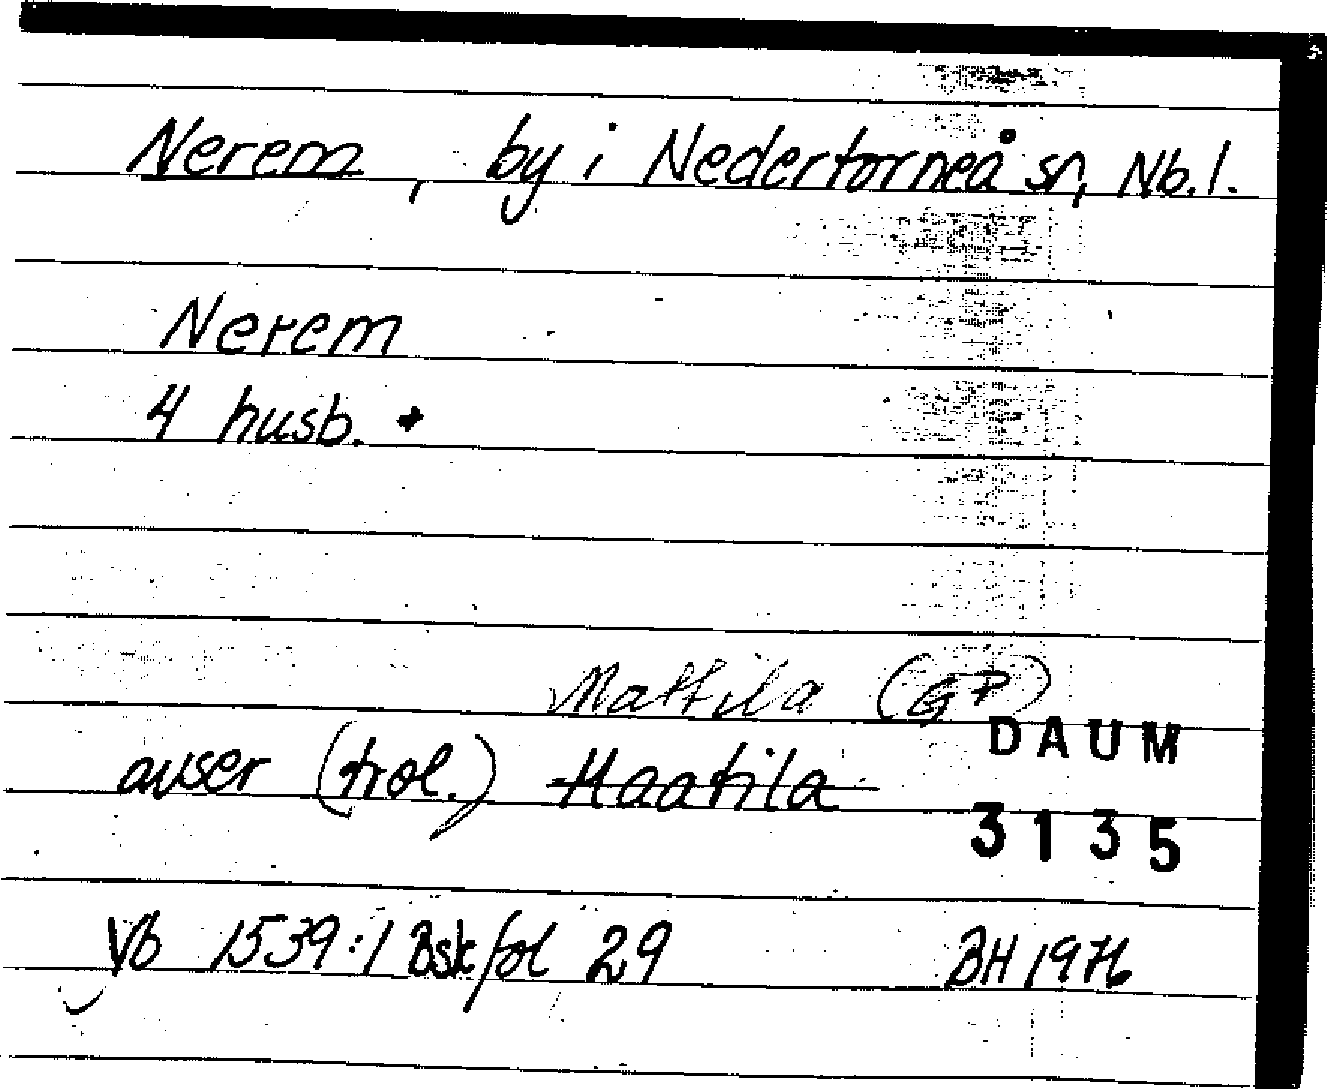 Nerem, by i Nedertorneå sn, Nb. l.
Nerem
4 husb.
Mattila (GP)
avser (trol.) Maatila
DAUM
3135
Vb 1539:1 Bsk fol 29
BH 1976